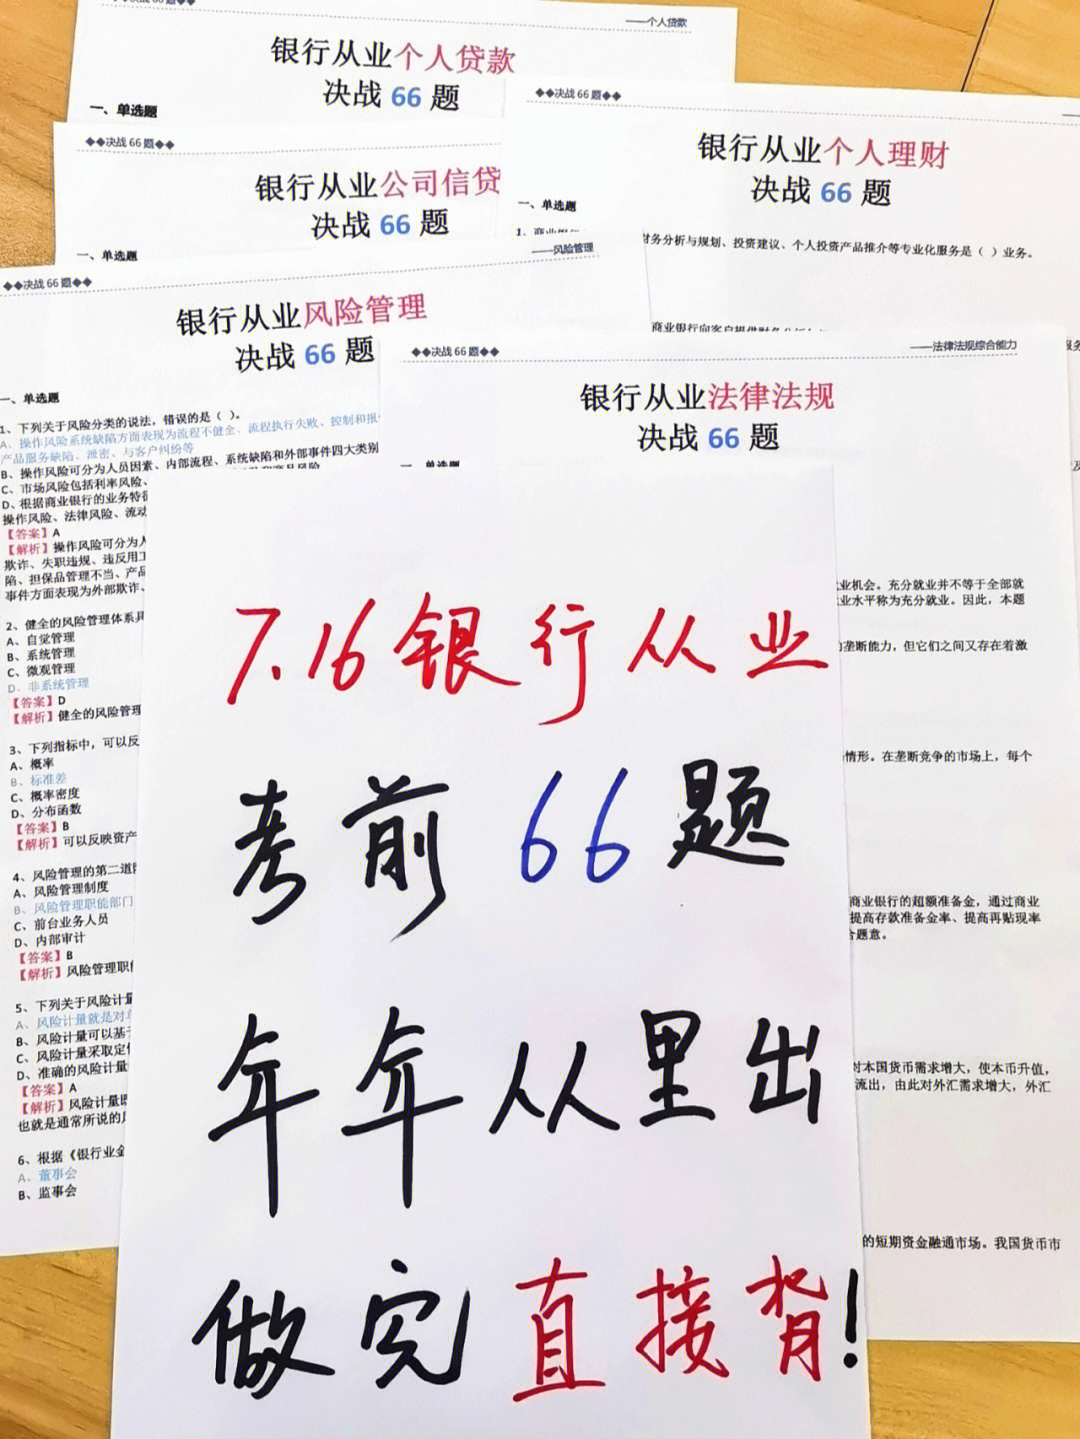 ◆◆决战66题◆◆
——个人贷款
银行从业个人贷款
决战 66 题
一、单选题
◆◆决战 66 题◆◆
银行从业公司信贷
决战 66 题
一、单选题
◆◆决战 66 题◆◆
银行从业个人理财
决战 66 题
一、单选题
1、商业银行
财务分析与规划、投资建议、个人投资产品推介等专业化服务是（ ）业务。
商业银行向客户提供财务分析
◆◆决战 66 题◆◆
——风险管理
银行从业风险管理
决战 66 题
一、单选题
1、下列关于风险分类的说法，错误的是（ ）。
A、操作风险系统缺陷方面表现为流程不健全、流程执行失败、控制和报
产品服务缺陷、泄密、与客户纠纷等
B、操作风险可分为人员因素、内部流程、系统缺陷和外部事件四大类别
C、市场风险包括利率风险、
D、根据商业银行的业务特征
操作风险、法律风险、流动
【答案】A
【解析】操作风险可分为人
欺诈、失职违规、违反用工
陷、担保品管理不当、产品
事件方面表现为外部欺诈、
2、健全的风险管理体系具
A、自觉管理
B、系统管理
C、微观管理
D、非系统管理
【答案】D
【解析】健全的风险管理
3、下列指标中，可以反
A、概率
B、标准差
C、概率密度
D、分布函数
【答案】B
【解析】可以反映资产
4、风险管理的第二道防
A、风险管理制度
B、风险管理职能部门
C、前台业务人员
D、内部审计
【答案】B
【解析】风险管理职能
5、下列关于风险计量
A、风险计量就是对单
B、风险计量可以基于
C、风险计量采取定性
D、准确的风险计量
【答案】A
【解析】风险计量既
也就是通常所说的
6、根据《银行业金
A、董事会
B、监事会
◆◆决战 66 题◆◆
——法律法规综合能力
银行从业法律法规
决战 66 题
一、单选题
业机会。充分就业并不等于全部就
业水平称为充分就业。因此，本题
垄断能力，但它们之间又存在着激
情形。在垄断竞争的市场上，每个
商业银行的超额准备金，通过商业
提高存款准备金率、提高再贴现率
合题意。
对本国货币需求增大，使本币升值，
流出，由此对外汇需求增大，外汇
的短期资金融通市场。我国货币市
7.16银行从业
考前66题
年年从里出
做完直接背!